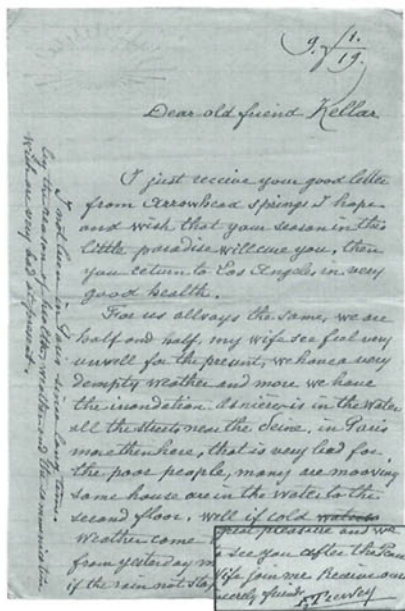 9. 1.
19.
Dear old friend Kellar
I just receive your good letter
from Arrowhead Springs I hope
and wish that your season in this
little paradise will cure you, then
you return to Los Angeles, in very
good health.
For us allways the same, we are
half and half, my wife see feel very
unwell for the present, we have a very
dempty weather and more we have
the inondation. Asnières is in the water
all the streets near the Seine, in Paris
more then here, that is very bad for
the poor people, many are mooving
some house are in the water to the
second floor. Well if cold
weather come
from yesterday
if the rain not stop
great pleasure and we
to see you after the
Wife join me Receive our
friends
I not been in Paris since long time.
by the reason of health, weather and the communication
wich are very bad at present.